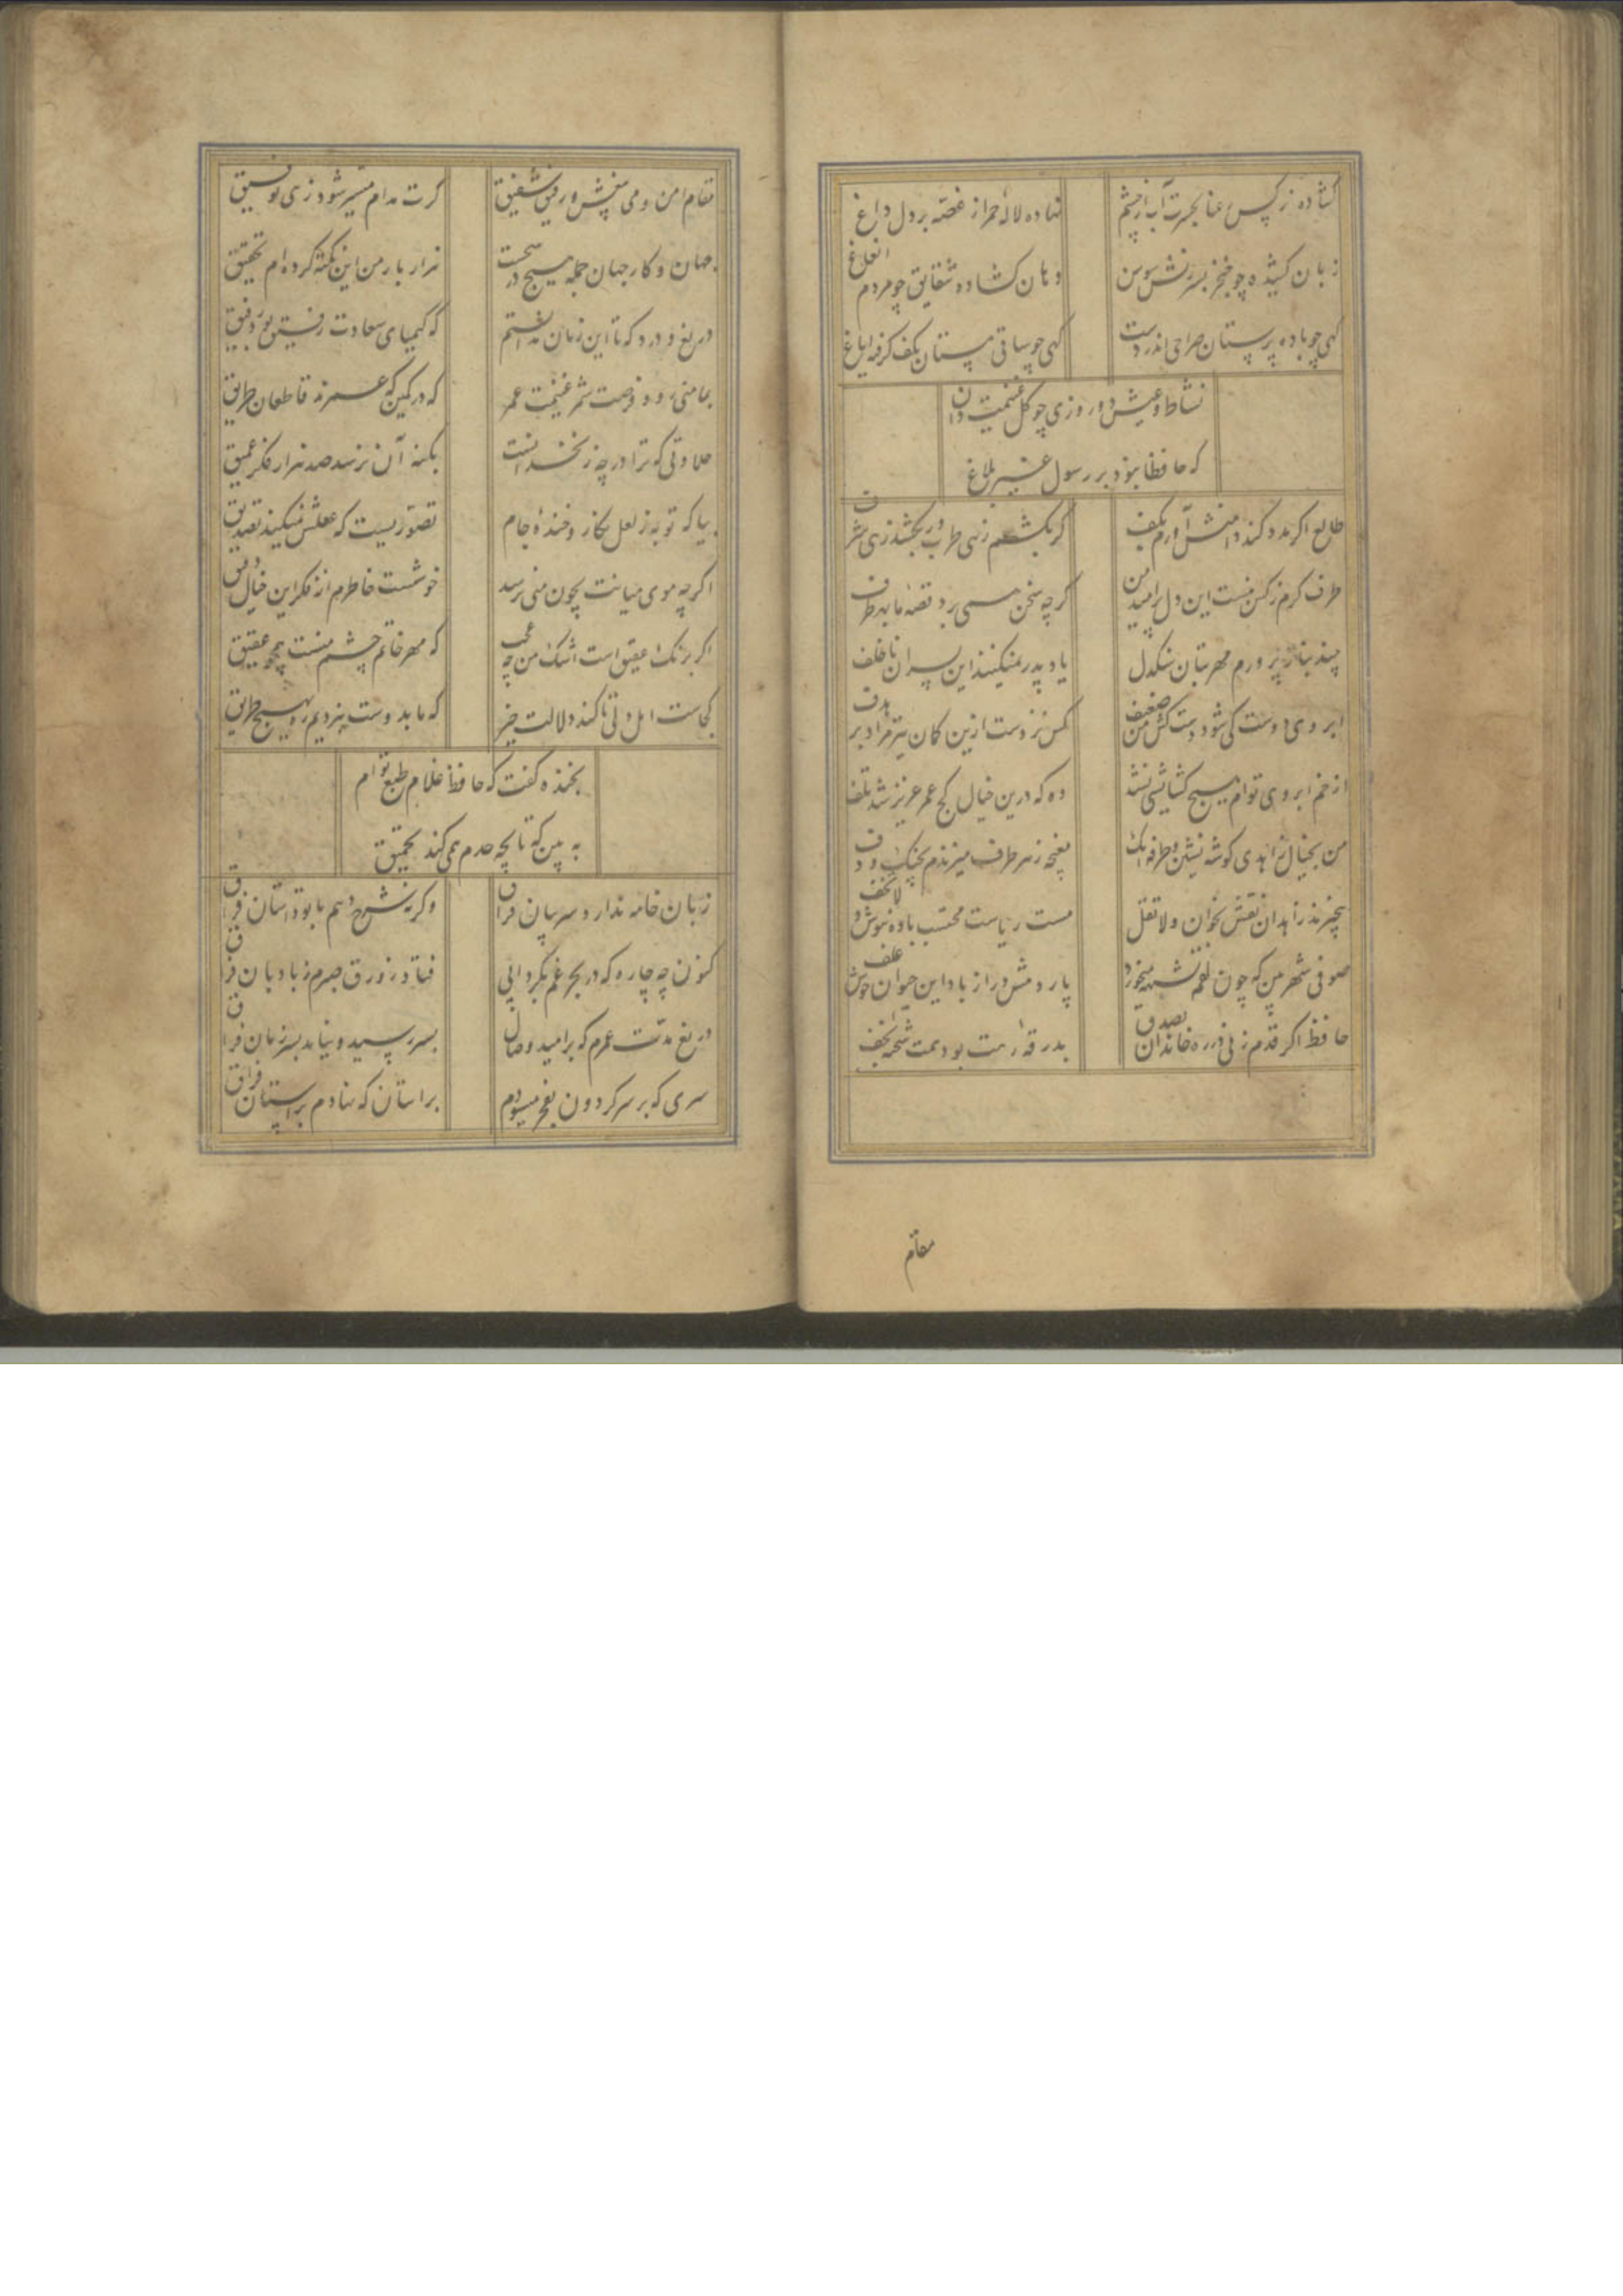 کشاده نرکس رعنا بحسرت آب از چشم
نهاده لاله حمرا از غصه بر دل داغ
زبان کشیده چو خنجر بسرزنش سوسن
دهان کشاده شقایق چو مردم انغاغ
کهی چو باده پرستان صراحی اندر دست
کهی چو ساقی مستان بکف کرفته ایاغ
نشاط و عیش دو روزی چو کل غنیمت دان
که حافظا نبود بر رسول غیر بلاغ
طالع اکر مدد کند دامنش آورم بکف
کر بکشم زهی طرب ور بکشد زهی شرف
طرف کرم ز کس نبست این دل پر امید من
کرچه سخن همی برد قصه ما بهر طرف
چند بناز پرورم مهر بتان سنکدل
یاد پدر نمیکنند این پسران ناخلف
ابروی دوست کی شود دستکش من ضعیف
کس نزدست ازین کمان تیر مراد بر هدف
از خم ابروی توام هیچ کشایشی نشد
وه که درین خیال کج عمر عزیز شد تلف
من بخیال زاهدی کوشه نشین و طرفه آنک
مغبچه ز هر طرف میزندم بچنک و دف
بیخبرند زاهدان نقش بخوان و لا تقل
مست ریاست محتسب باده بنوش و لا تخف
صوفی شهر بین که چون لقمه شبهه میخورد
پاردمش دراز باد این حیوان خوش علف
حافظ اکر قدم زنی در ره خاندان بصدق
بدرقه رهت بود همت شحنه نجف
مقام
مقام امن و می بیغش و رفیق شفیق
کرت مدام میسر شود زهی توفیق
جهان و کار جهان جمله هیچ در هیچست
هزار بار من این نکته کرده ام تحقیق
دریغ و درد که تا این زمان ندانستم
که کیمیای سعادت رفیق بود رفیق
بمامنی رو و فرصت شمر غنیمت عمر
که در کمین که عمرند قاطعان طریق
حلاوتی که ترا در چه زنخدانست
بکنه آن نرسد صد هزار فکر عمیق
بیا که توبه ز لعل نکار و خنده جام
تصوریست که عقلش نمیکند تصدیق
اکرچه موی میانت بچون منی نرسد
خوشست خاطرم از فکر این خیال دقیق
اکر برنک عقیق است اشک من چه عجب
که مهر خاتم چشم منست همچو عقیق
کجاست اهل دلی تا کند دلالت خیر
که ما بدوست نبردیم ره بهیچ طریق
بخنده کفت که حافظ غلام طبع توام
به بین که تا بچه حدم همی کند تحمیق
زبان خامه ندارد سر بیان فراق
وکرنه شرح دهم با تو داستان فراق
کنون چه چاره که در بحر غم بکردابی
فتاد زورق صبرم ز بادبان فراق
دریغ مدت عمرم که بر امید وصال
بسر رسید و نیامد بسر زمان فراق
سری که بر سر کردون بفخر میسودم
براستان که نهادم بر آستان فراق